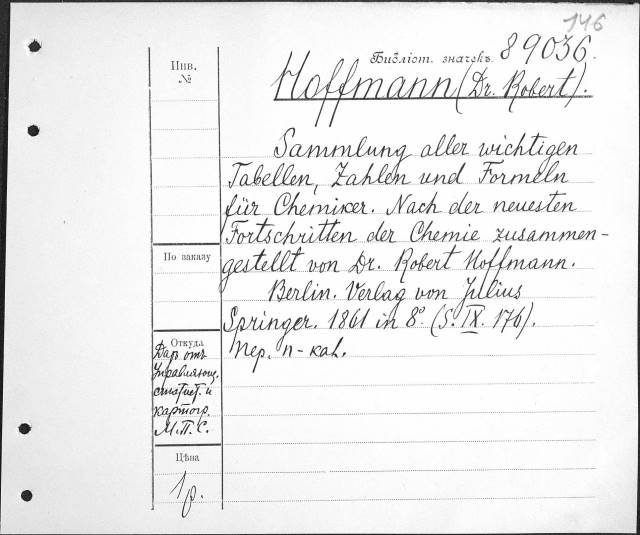 146
Библіот. значекъ 89036.
Инв.
№
Hoffmann (Dr. Robert).
Sammlung aller wichtigen
Tabellen, Zahlen und Formeln
für Chemiker. Nach der neuesten
Fortschritten der Chemie zusammen-
gestellt von Dr. Robert Hoffmann.
Berlin. Verlag von Julius
Springer. 1861 in 8° (S. IX. 176).
Пер. п-каl.
По заказу
Откуда
Даръ отъ
Управляющ.
статист. и
картогр.
М.П.С.
Цѣна
1 р.